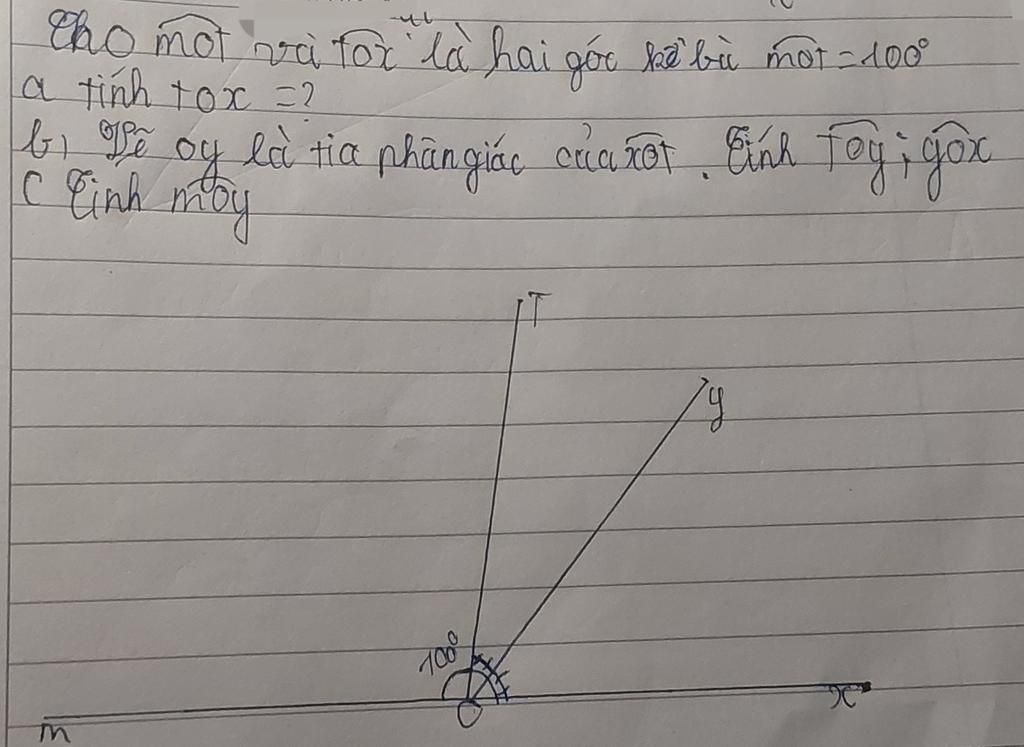 Cho mot và tox là hai góc kề bù mot = 100°
a tính tox = ?
b, Vẽ oy là tia phân giác của xot. Tính toy ; yox
c Tính moy
T
y
100°
x
O
m